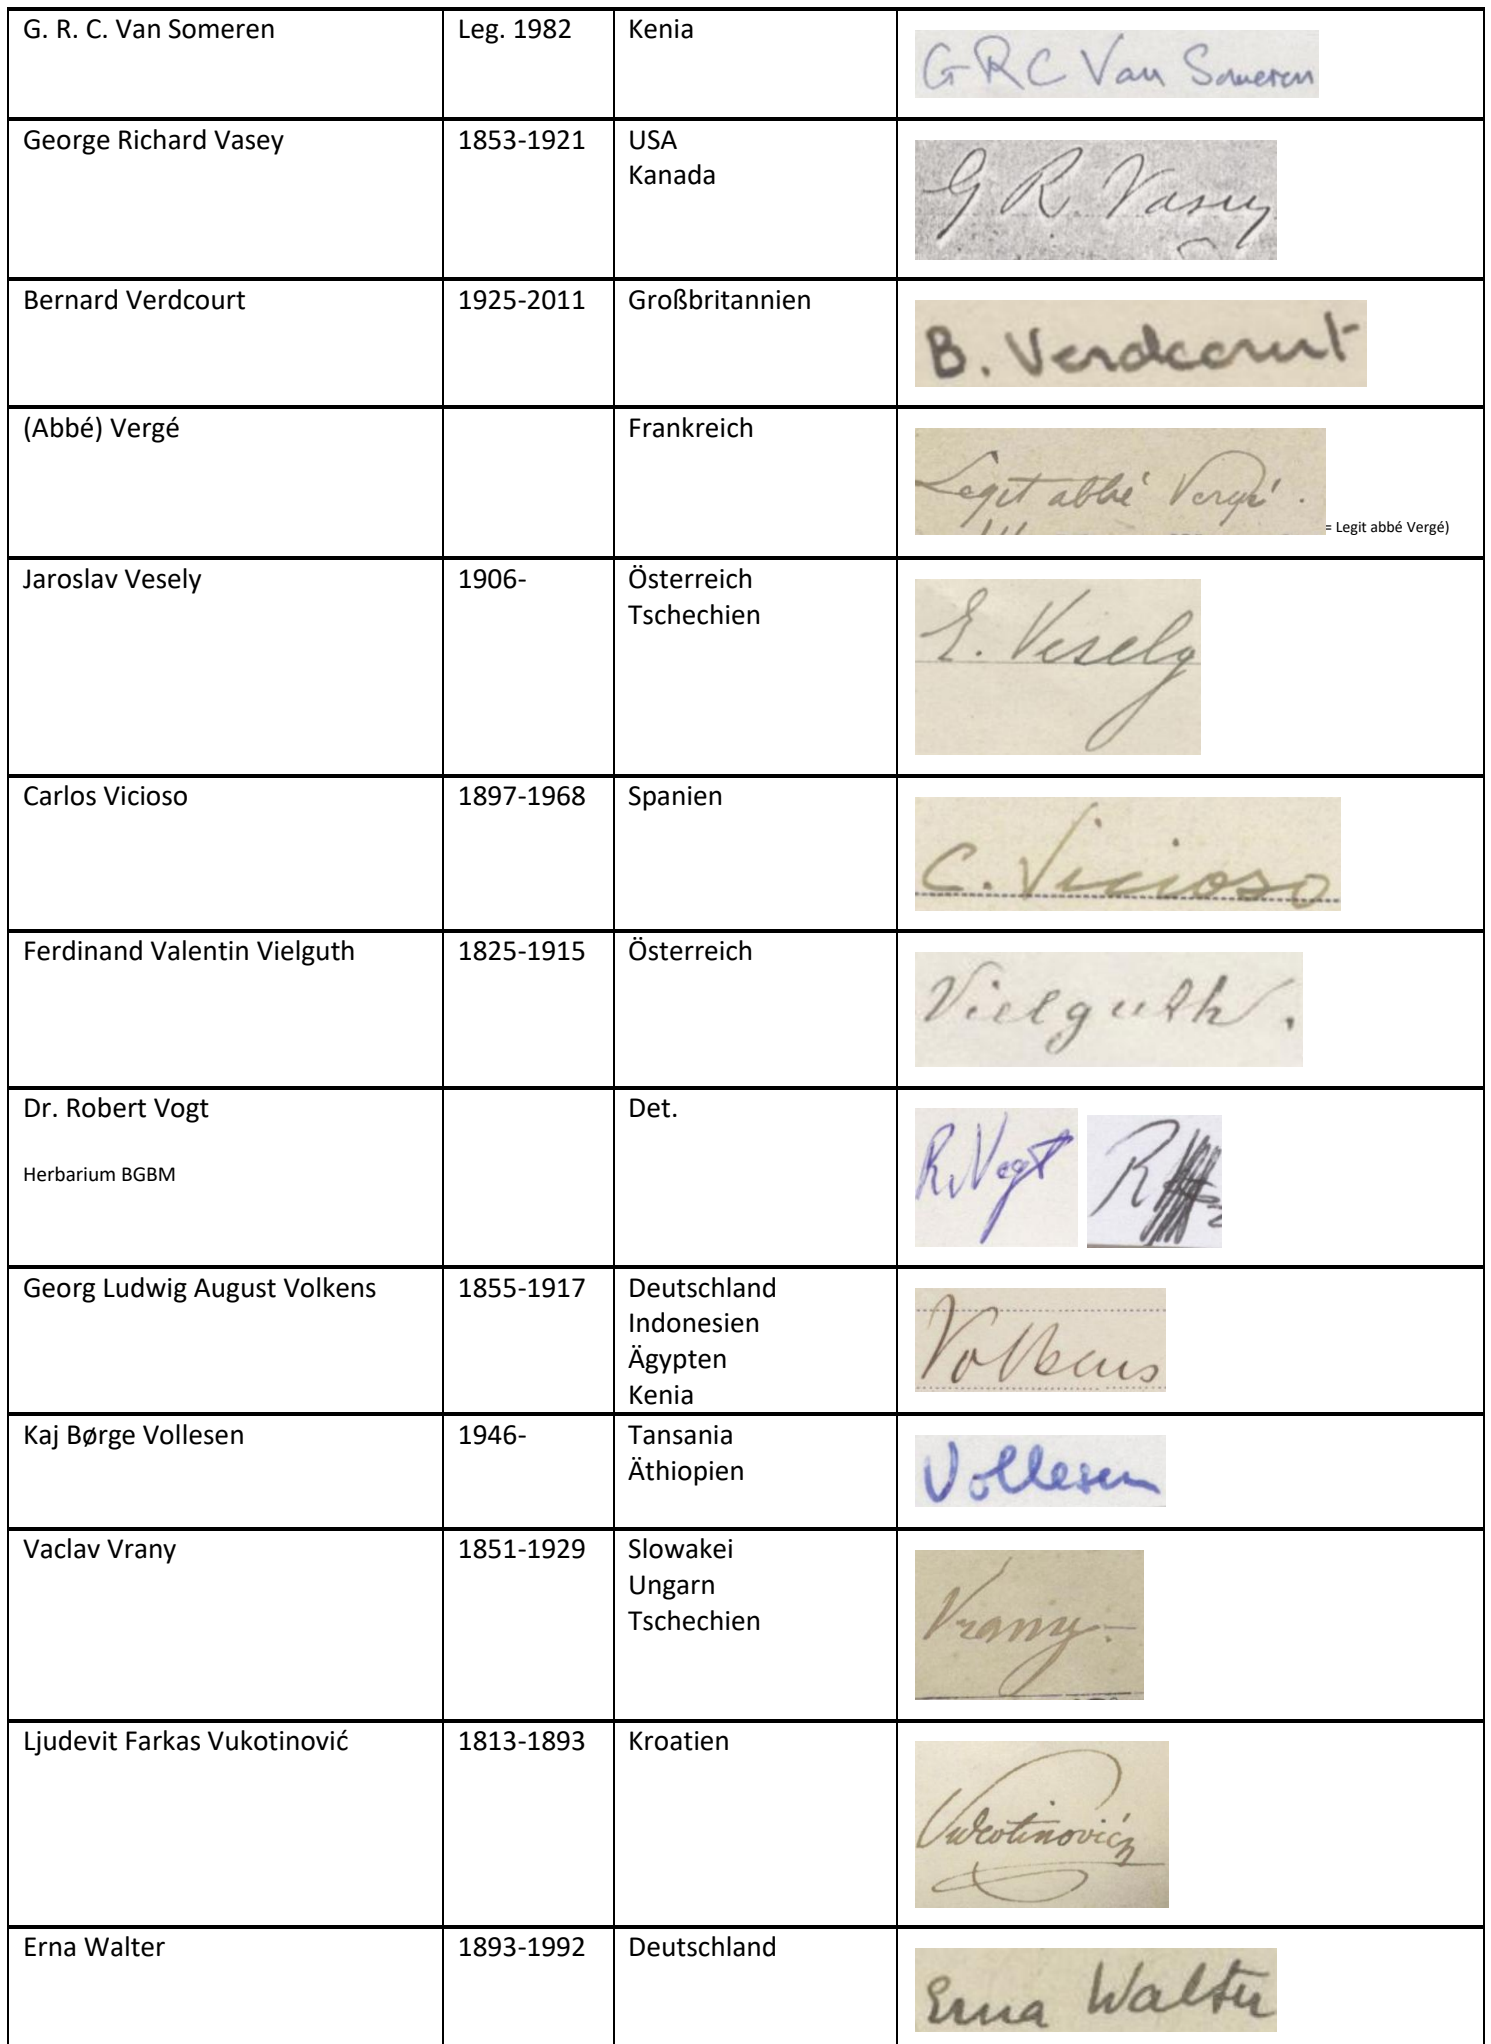 G. R. C. Van Someren Leg. 1982 Kenia GRC Van Someren
George Richard Vasey 1853-1921 USA
Kanada
G R. Vasey
Bernard Verdcourt 1925-2011 Großbritannien
B. Verdcourt
(Abbé) Vergé Frankreich
Legit abbé Vergé.
= Legit abbé Vergé)
Jaroslav Vesely 1906- Österreich
Tschechien
E. Vesely
Carlos Vicioso 1897-1968 Spanien
C. Vicioso
Ferdinand Valentin Vielguth 1825-1915 Österreich
Vielguth.
Dr. Robert Vogt Det.
Herbarium BGBM
R. Vogt
Georg Ludwig August Volkens 1855-1917 Deutschland
Indonesien
Ägypten
Kenia
Volkens
Kaj Børge Vollesen 1946- Tansania
Äthiopien
Vollesen
Vaclav Vrany 1851-1929 Slowakei
Ungarn
Tschechien
Vrany
Ljudevit Farkas Vukotinović 1813-1893 Kroatien
Vukotinović
Erna Walter 1893-1992 Deutschland
Erna Walter